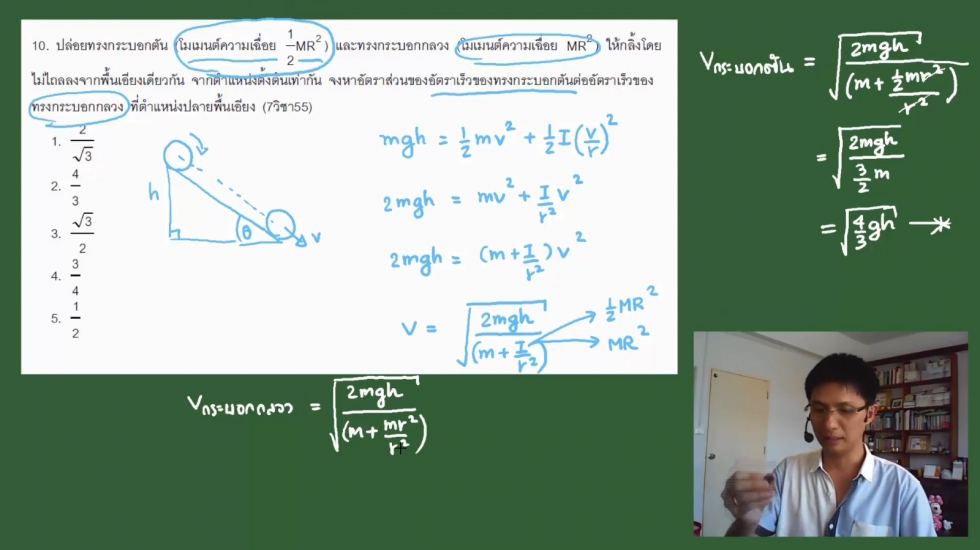 10. ปล่อยทรงกระบอกตัน (โมเมนต์ความเฉื่อย 1/2 MR²) และทรงกระบอกกลวง (โมเมนต์ความเฉื่อย MR²) ให้กลิ้งโดย
ไม่ไถลลงจากพื้นเอียงเดียวกัน จากตำแหน่งตั้งต้นเท่ากัน จงหาอัตราส่วนของอัตราเร็วของทรงกระบอกตันต่ออัตราเร็วของ
ทรงกระบอกกลวง ที่ตำแหน่งปลายพื้นเอียง (7วิชา55)
1. 2/√3
2. 4/3
3. √3/2
4. 3/4
5. 1/2
h
θ
v
mgh = ½mv² + ½I(v/r)²
2mgh = mv² + I/r² v²
2mgh = (m + I/r²)v²
v = √(2mgh/(m + I/r²))
½MR²
MR²
Vกระบอกตัน = √(2mgh/(m + ½mr²/r²))
= √(2mgh/(3/2 m))
= √(4/3 gh)
Vกระบอกกลวง = √(2mgh/(m + mr²/r²))